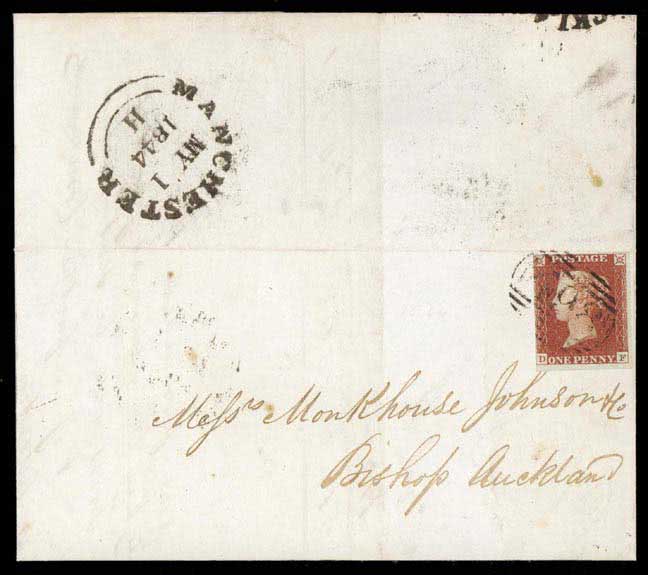 MANCHESTER
H
1844
MY 1
POSTAGE
D ONE PENNY F
Messrs Monkhouse Johnson & Co
Bishop Auckland